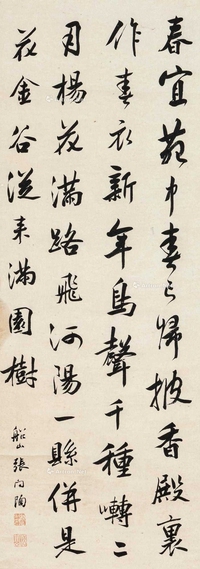 春宜苑中春已歸披香殿裏
作春衣新年鳥聲千種囀二
月楊花滿路飛河陽一縣併是
花金谷從来滿園樹
船山張問陶